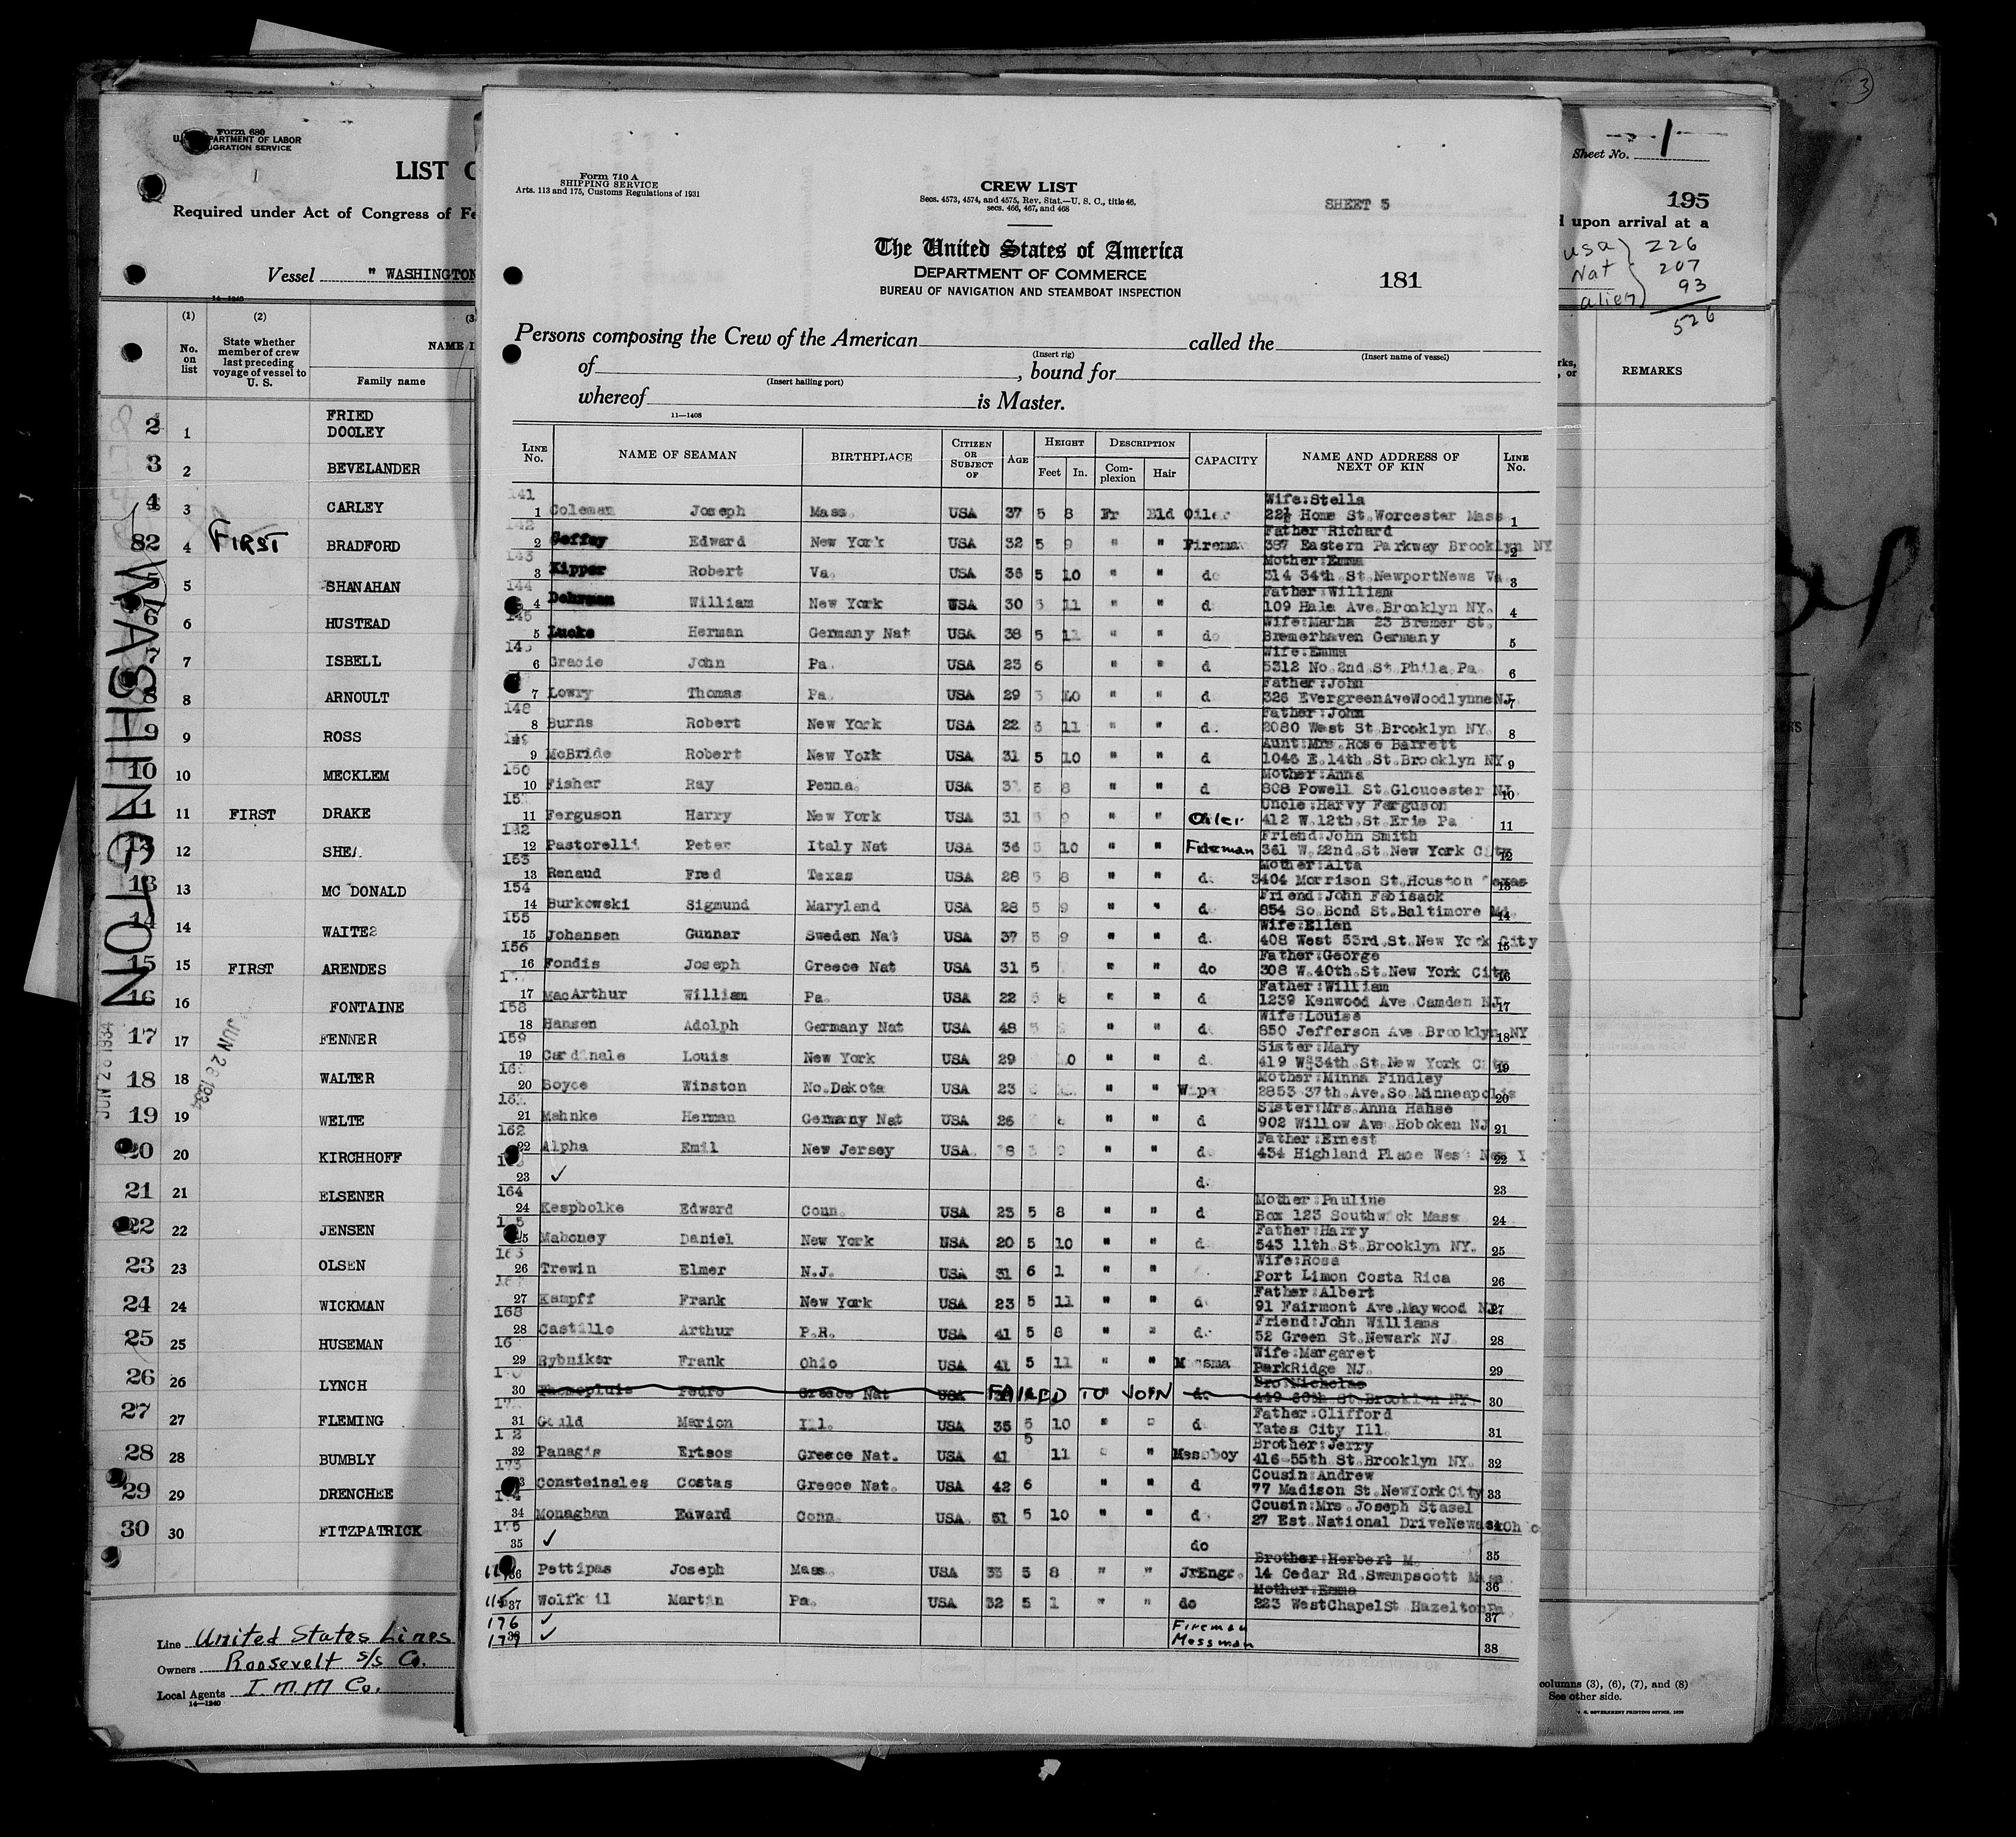 Form 680
U. S. DEPARTMENT OF LABOR
IMMIGRATION SERVICE
LIST
Required under Act of Congress of Fe
Vessel " WASHINGTON
14—1240
(1) (2) (3
No. on list
State whether member of crew last preceding voyage of vessel to U. S.
NAME I
Family name
2 FRIED
1 DOOLEY
3 2 BEVELANDER
4 3 CARLEY
82 4 FIRST BRADFORD
5 5 SHANAHAN
6 6 HUSTEAD
7 7 ISBELL
8 8 ARNOULT
9 9 ROSS
10 10 MECKLEM
11 11 FIRST DRAKE
12 12 SHEA
13 13 MC DONALD
14 14 WAITES
15 15 FIRST ARENDES
16 16 FONTAINE
17 17 FENNER
18 18 WALTER
19 19 WELTE
20 20 KIRCHHOFF
21 21 ELSENER
22 22 JENSEN
23 23 OLSEN
24 24 WICKMAN
25 25 HUSEMAN
26 26 LYNCH
27 27 FLEMING
28 28 BUMBLY
29 29 DRENCHEE
30 30 FITZPATRICK
WASHINGTON
JUN 28 1934
JUN 28 1934
Line United States Lines
Owners Roosevelt S/S Co.
Local Agents I.M.M Co.
14—1240
Form 710 A
SHIPPING SERVICE
Arts. 113 and 175, Customs Regulations of 1931
CREW LIST
Secs. 4573, 4574, and 4575, Rev. Stat.—U. S. C., title 46,
secs. 466, 467, and 468
SHEET 5
The United States of America
DEPARTMENT OF COMMERCE
BUREAU OF NAVIGATION AND STEAMBOAT INSPECTION
181
Persons composing the Crew of the American called the
(Insert rig) (Insert name of vessel)
of , bound for
(Insert hailing port)
whereof is Master.
11—1408
LINE No. NAME OF SEAMAN BIRTHPLACE CITIZEN OR SUBJECT OF AGE HEIGHT Feet In. DESCRIPTION Complexion Hair CAPACITY NAME AND ADDRESS OF NEXT OF KIN LINE No.
141 Wife:Stella
1 Coleman Joseph Mass. USA 37 5 8 Fr Bld Oiler 22½ Home St.Worcester Mass 1
142 Father Richard
2 Geffey Edward New York USA 32 5 9 " " Fireman 387 Eastern Parkway Brooklyn NY 2
143 Mother:Emma
3 Kipper Robert Va. USA 36 5 10 " " do 314 34th St.NewportNews Va 3
144 Father:William
4 Dohrman William New York USA 30 5 11 " " d 109 Hale Ave.Brooklyn NY. 4
145 Wife:Marha 23 Bremer St.
5 Lucke Herman Germany Nat USA 38 5 11 " " do Bremerhaven Germany 5
Wife:Emma
6 Gracie John Pa. USA 23 6 " " d 5312 No.2nd St.Phila.Pa. 6
Father:John
7 Lowry Thomas Pa. USA 29 5 10 " " d 326 EvergreenAveWoodlynneNJ. 7
148 Father:John
8 Burns Robert New York USA 22 5 11 " " d. 2080 West St.Brooklyn NY. 8
149 Aunt:Mrs.Rose Barrett
9 McBride Robert New York USA 31 5 10 " " d 1046 E.14th.St.Brooklyn NY. 9
150 Mother:Anna
10 Fisher Ray Penna. USA 5 8 " " d 808 Powell St.Gloucester NJ. 10
Uncle:Harvy Ferguson
11 Ferguson Harry New York USA 31 5 9 " " Oiler 412 W.12th.St.Erie Pa 11
Friend:John Smith
12 Pastorelli Peter Italy Nat USA 36 5 10 " " Fireman 361 W.22nd.St.New York City 12
153 Mother:Alta
13 Renaud Fred Texas USA 28 5 8 " " d. 3404 Morrison St.Houston Texas 13
154 Friend:John Fabisack
14 Burkowski Sigmund Maryland USA 28 5 9 " " d 854 So.Bond St.Baltimore Md. 14
155 Wife:Ellen
15 Johansen Gunnar Sweden Nat USA 37 5 9 " " d. 408 West 53rd.St.New York City 15
156 Father:George
16 Fondis Joseph Greece Nat USA 31 5 " " do 308 W.40th.St.New York City 16
Father:William
17 MacArthur William Pa. USA 22 5 8 " " d 1239 Kenwood Ave Camden NJ. 17
158 Wife:Louise
18 Hansen Adolph Germany Nat USA 48 5 " " d 850 Jefferson Ave Brooklyn NY 18
159 Sister:Mary
19 Cardinale Louis New York USA 29 " " d. 419 W 34th.St.New York City 19
Mother:Minna Findley
20 Boyce Winston No.Dakota USA 23 " " 2853 37th.Ave.So.Minneapolis 20
Sister:Mrs.Anna Hahse
21 Mahnke Herman Germany Nat USA 26 " " d 902 Willow Ave Hoboken NJ 21
162 Father:Ernest
22 Alpha Emil New Jersey USA. " " d 434 Highland Place West New 22
23 ✓ d. 23
164 Mother:Pauline
24 Kespbolke Edward Conn. USA 23 5 8 " " d Box 123 Southwick Mass 24
Father:Harry
25 Mahoney Daniel New York NSA 20 5 10 " " d. 543 11th.St.Brooklyn NY. 25
Wife:Rosa
26 Trewin Elmer N.J. USA 31 6 1 " " Port Limon Costa Rica 26
Father:Albert
27 Kampff Frank New York USA 23 5 11 " " d 91 Fairmont Ave.Maywood NJ 27
168 Friend:John Williams
28 Castillo Arthur P.R. USA 41 5 8 " " d. 52 Green St.Newark NJ. 28
Wife:Margaret
29 Rybniker Frank Ohio USA 41 5 11 " " Messman ParkRidge NJ. 29
Bro:Nicholas
30 Pedro Greece Nat USA FAILED TO JOIN do 449 60th St.Brooklyn NY. 30
Father:Clifford
31 Gould Marion Ill. USA 35 5 10 " " d Yates City Ill. 31
Brother:Jerry
32 Panagis Ertsos Greece Nat. USA 41 5 11 " " Messboy 416-55th St.Brooklyn NY. 32
173 Cousin:Andrew
Consteinsles Costas Greece Nat. USA 42 6 " " d 77 Madison St.NewYorkCity 33
Cousin:Mrs.Joseph Stasel
34 Monaghan Edward Conn. USA. 51 5 10 " " d. 27 Est.National DriveNewarkOhio 34
175
35 ✓ do 35
Brother:Herbert M.
36 Pettipas Joseph Mass. USA 33 5 8 " " JrEngr. 14 Cedar Rd.Swampscott Mass. 36
Mother:Emma
115 37 Wolfkil Martin Pa. USA 32 5 1 " " do 223 WestChapelSt Hazelton Pa. 37
176 ✓ Fireman
177 38 ✓ Messman 38
3
Sheet No. 1
195
d upon arrival at a
usa 226
Nat 207
alien 93
526
rks, or
REMARKS
columns (3), (6), (7), and (8)
See other side.
U. S. GOVERNMENT PRINTING OFFICE